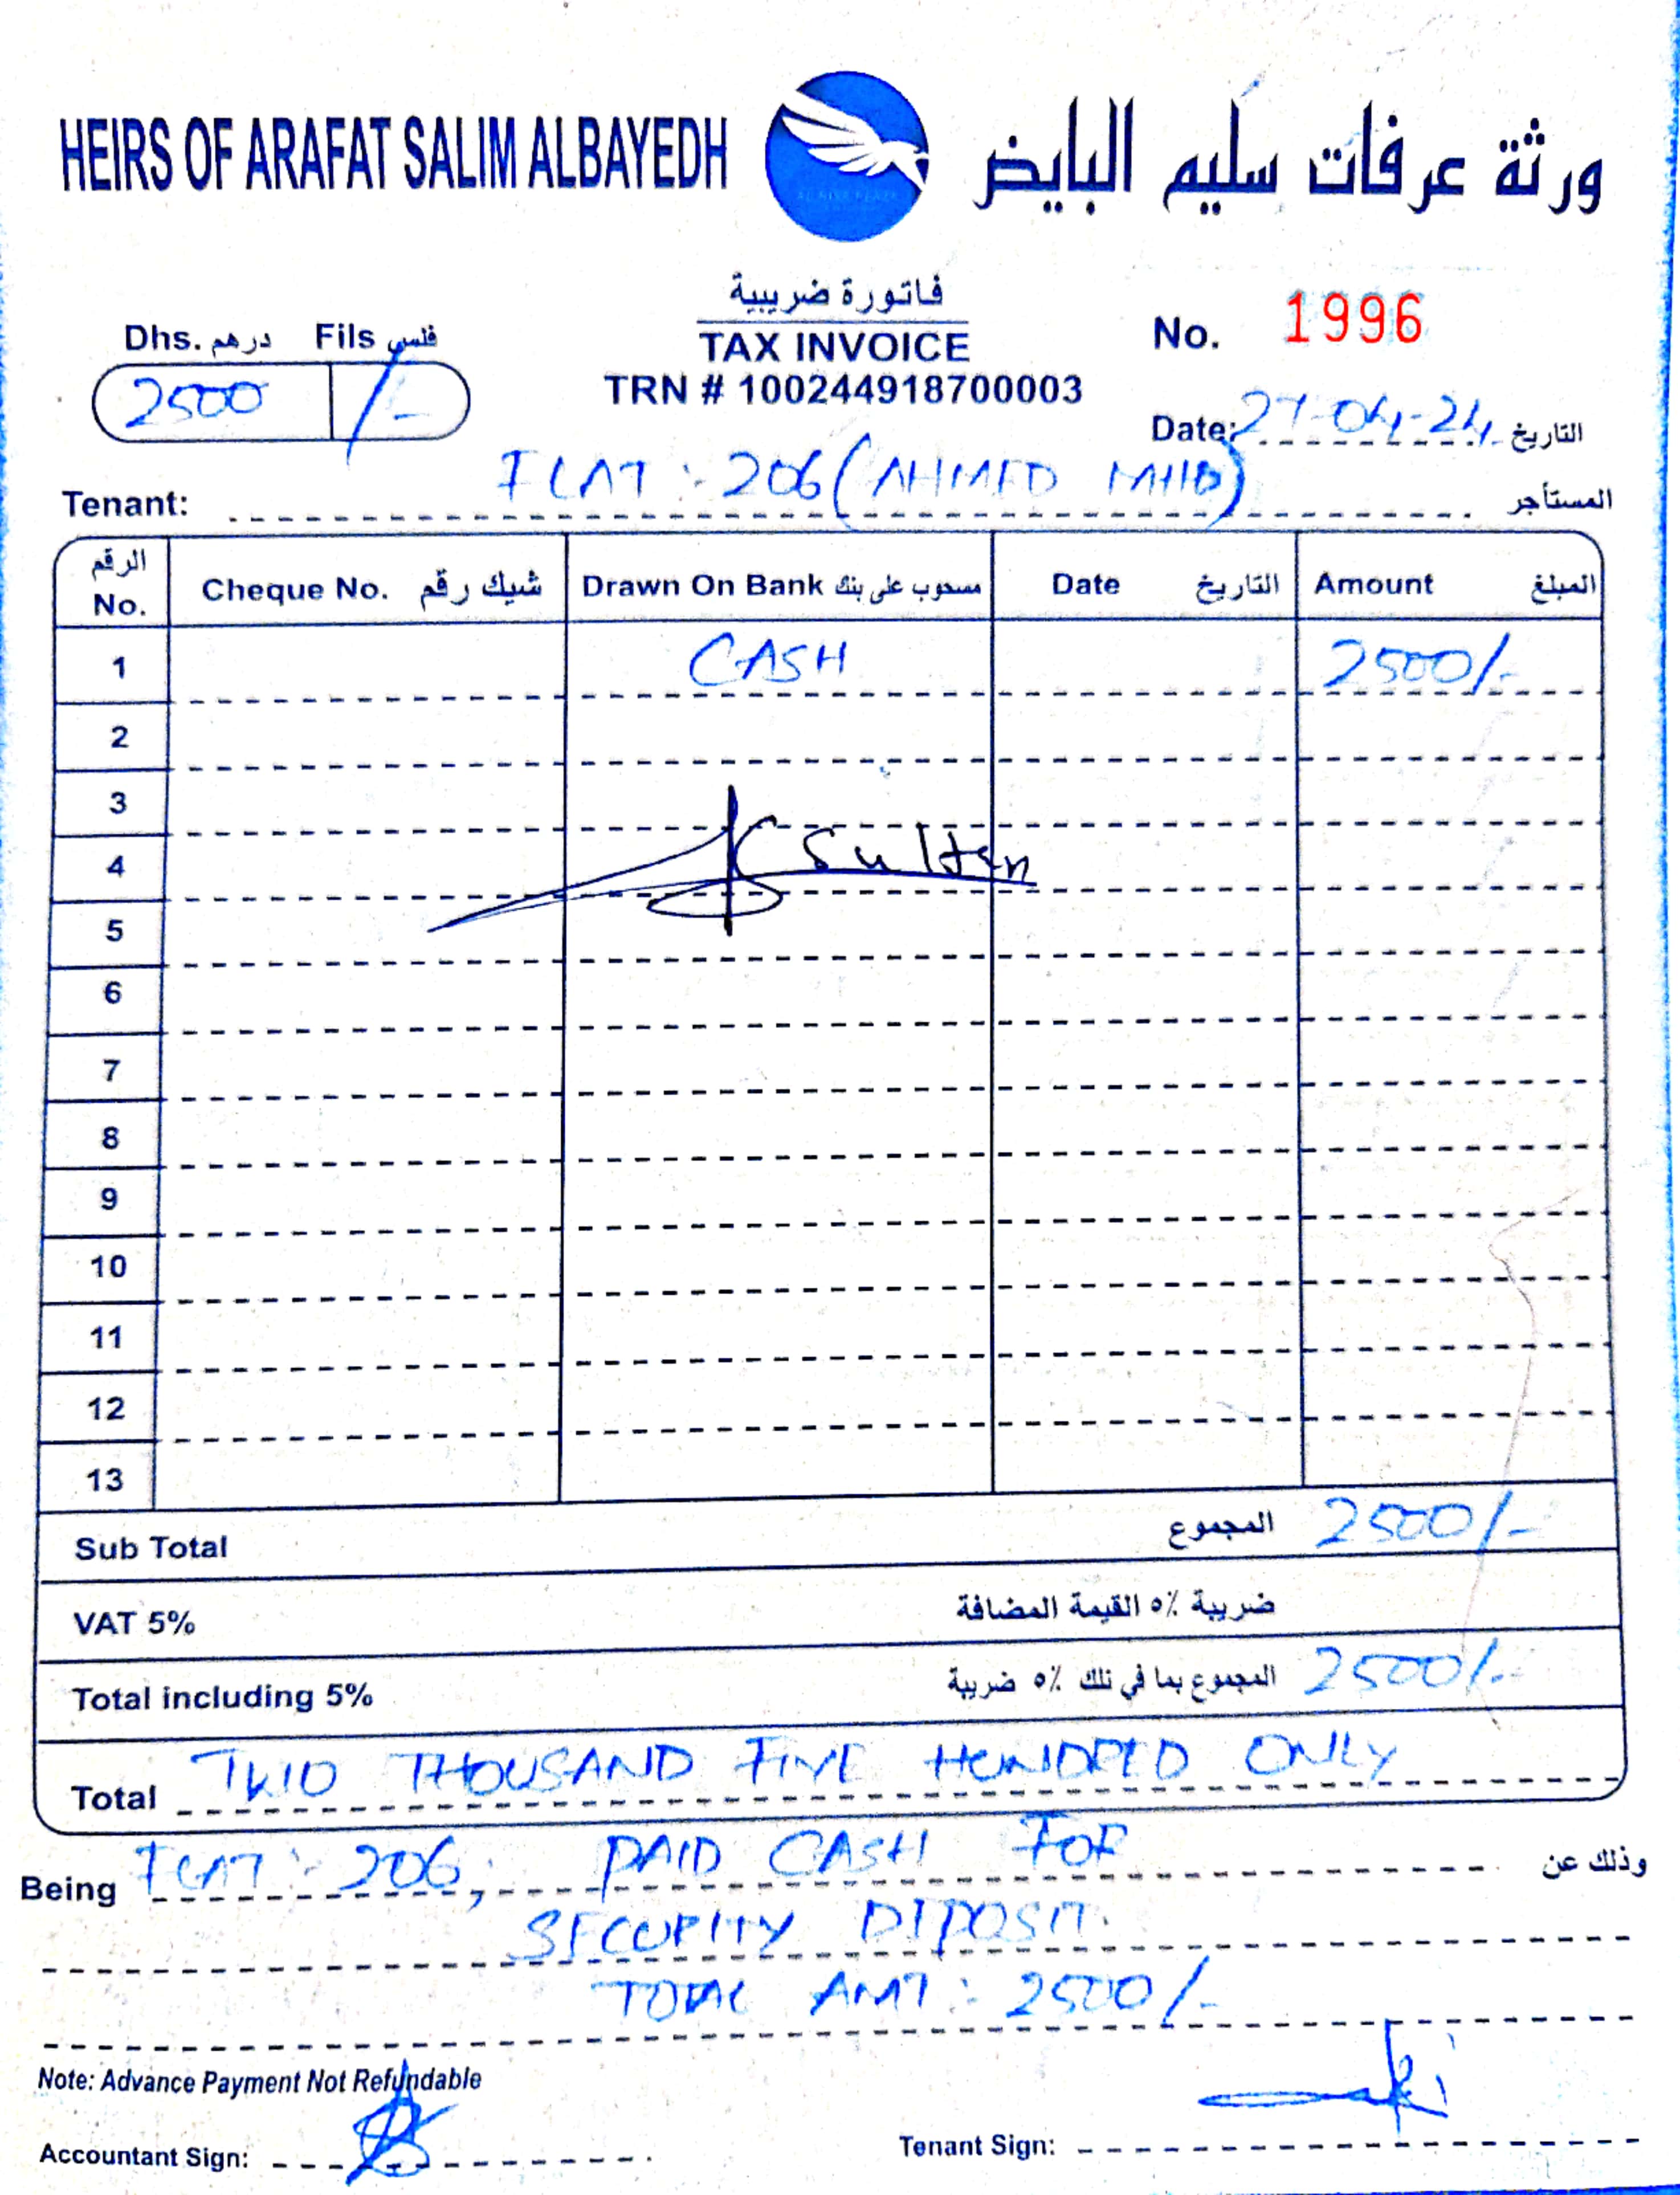 HEIRS OF ARAFAT SALIM ALBAYEDH ورثة عرفات سليم البايض
فاتورة ضريبية
TAX INVOICE
TRN # 100244918700003
Dhs. درهم Fils فلس
2500 /-
No. 1996
Date: 27-04-24 التاريخ
Tenant: FLAT : 206 (AHMED المستأجر
الرقم No. Cheque No. شيك رقم Drawn On Bank مسحوب على بنك Date التاريخ Amount المبلغ
1 CASH 2500/-
2
3
4 Sultan
5
6
7
8
9
10
11
12
13
Sub Total المجموع 2500/-
VAT 5% ضريبة ٥٪ القيمة المضافة
Total including 5% المجموع بما في ذلك ٥٪ ضريبة 2500/-
Total TWO THOUSAND FIVE HUNDRED ONLY
Being FLAT : 206, PAID CASH FOR وذلك عن
SECURITY DEPOSIT.
TOTAL AMT : 2500/-
Note: Advance Payment Not Refundable
Accountant Sign: Tenant Sign: